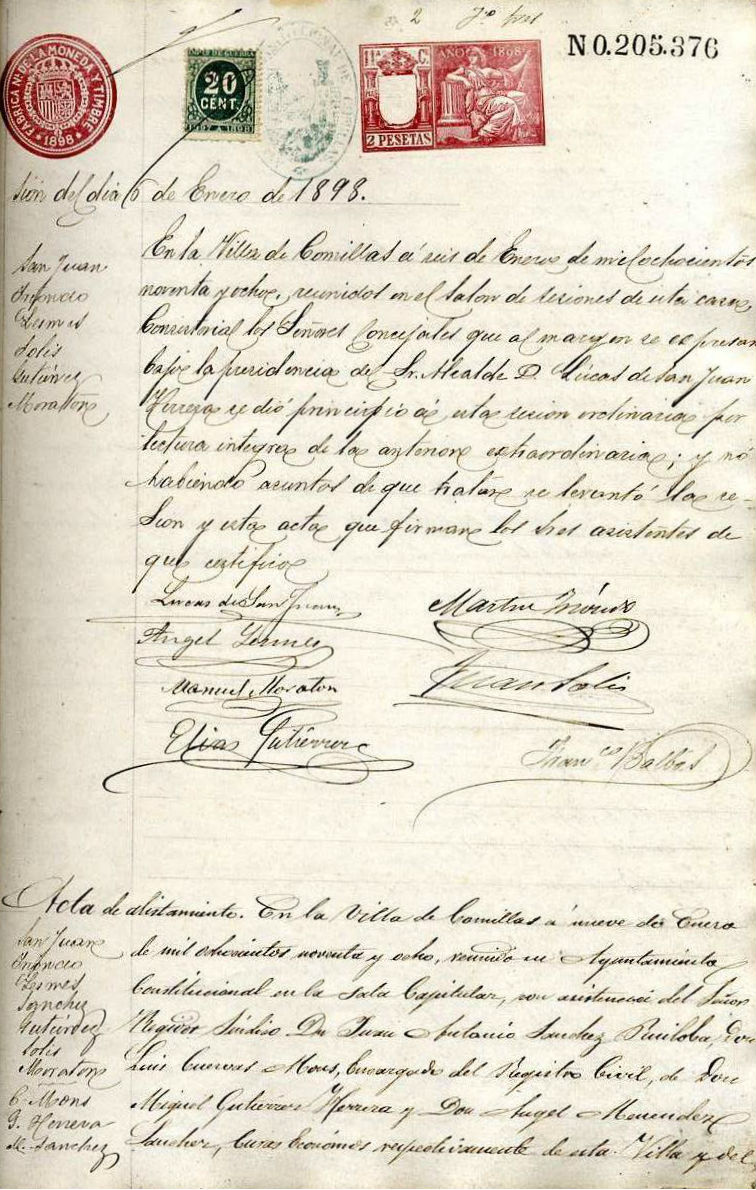 2
FABRICA Nl. DE LA MONEDA Y TIMBRE
1898
20
CENT.
1897 A 1898
11ª C.
AÑO 1898
2 PESETAS
N 0.205.376
sión del dia 6 de Enero de 1898.
San Juan
Lesmes
Solis
Gutiérrez
Moratón
En la Villa de Comillas á seis de Enero de mil ochocientos
noventa y ocho, reunidos en el salon de sesiones de esta casa
Consistorial los Señores Concejales que al margen se expresan
bajo la presidencia del Sr. Alcalde D. Lúcas de San Juan
Herrera se dió principio á esta sesion ordinaria por
lectura integra de la anterior extraordinaria; y nó
habiendo asuntos de que tratar se levantó la se-
sion y esta acta que firman los Sres asistentes de
que certifico
Lucas de San Juan
Martin
Angel Lesmes
Juan Solis
Manuel Moraton
Elias Gutiérrez
Franco Balbás
Acta de alistamiento. En la Villa de Comillas á nueve de Enero
San Juan
Lesmes
Sanchez
Gutiérrez
Solis
Moratón
C. Mons
G. Herrera
M. Sanchez
de mil ochocientos noventa y ocho, reunido el Ayuntamiento
Constitucional en la Sala Capitular, con asistencia del Señor
Regidor Síndico Dn Juan Antonio Sanchez Ruiloba, Don
Luis Cuevas Mons, Encargado del Registro Civil, de Don
Miguel Gutiérrez Herrera y Don Angel Menendez
Sanchez, Curas Ecónomos respectivamente de esta Villa y del